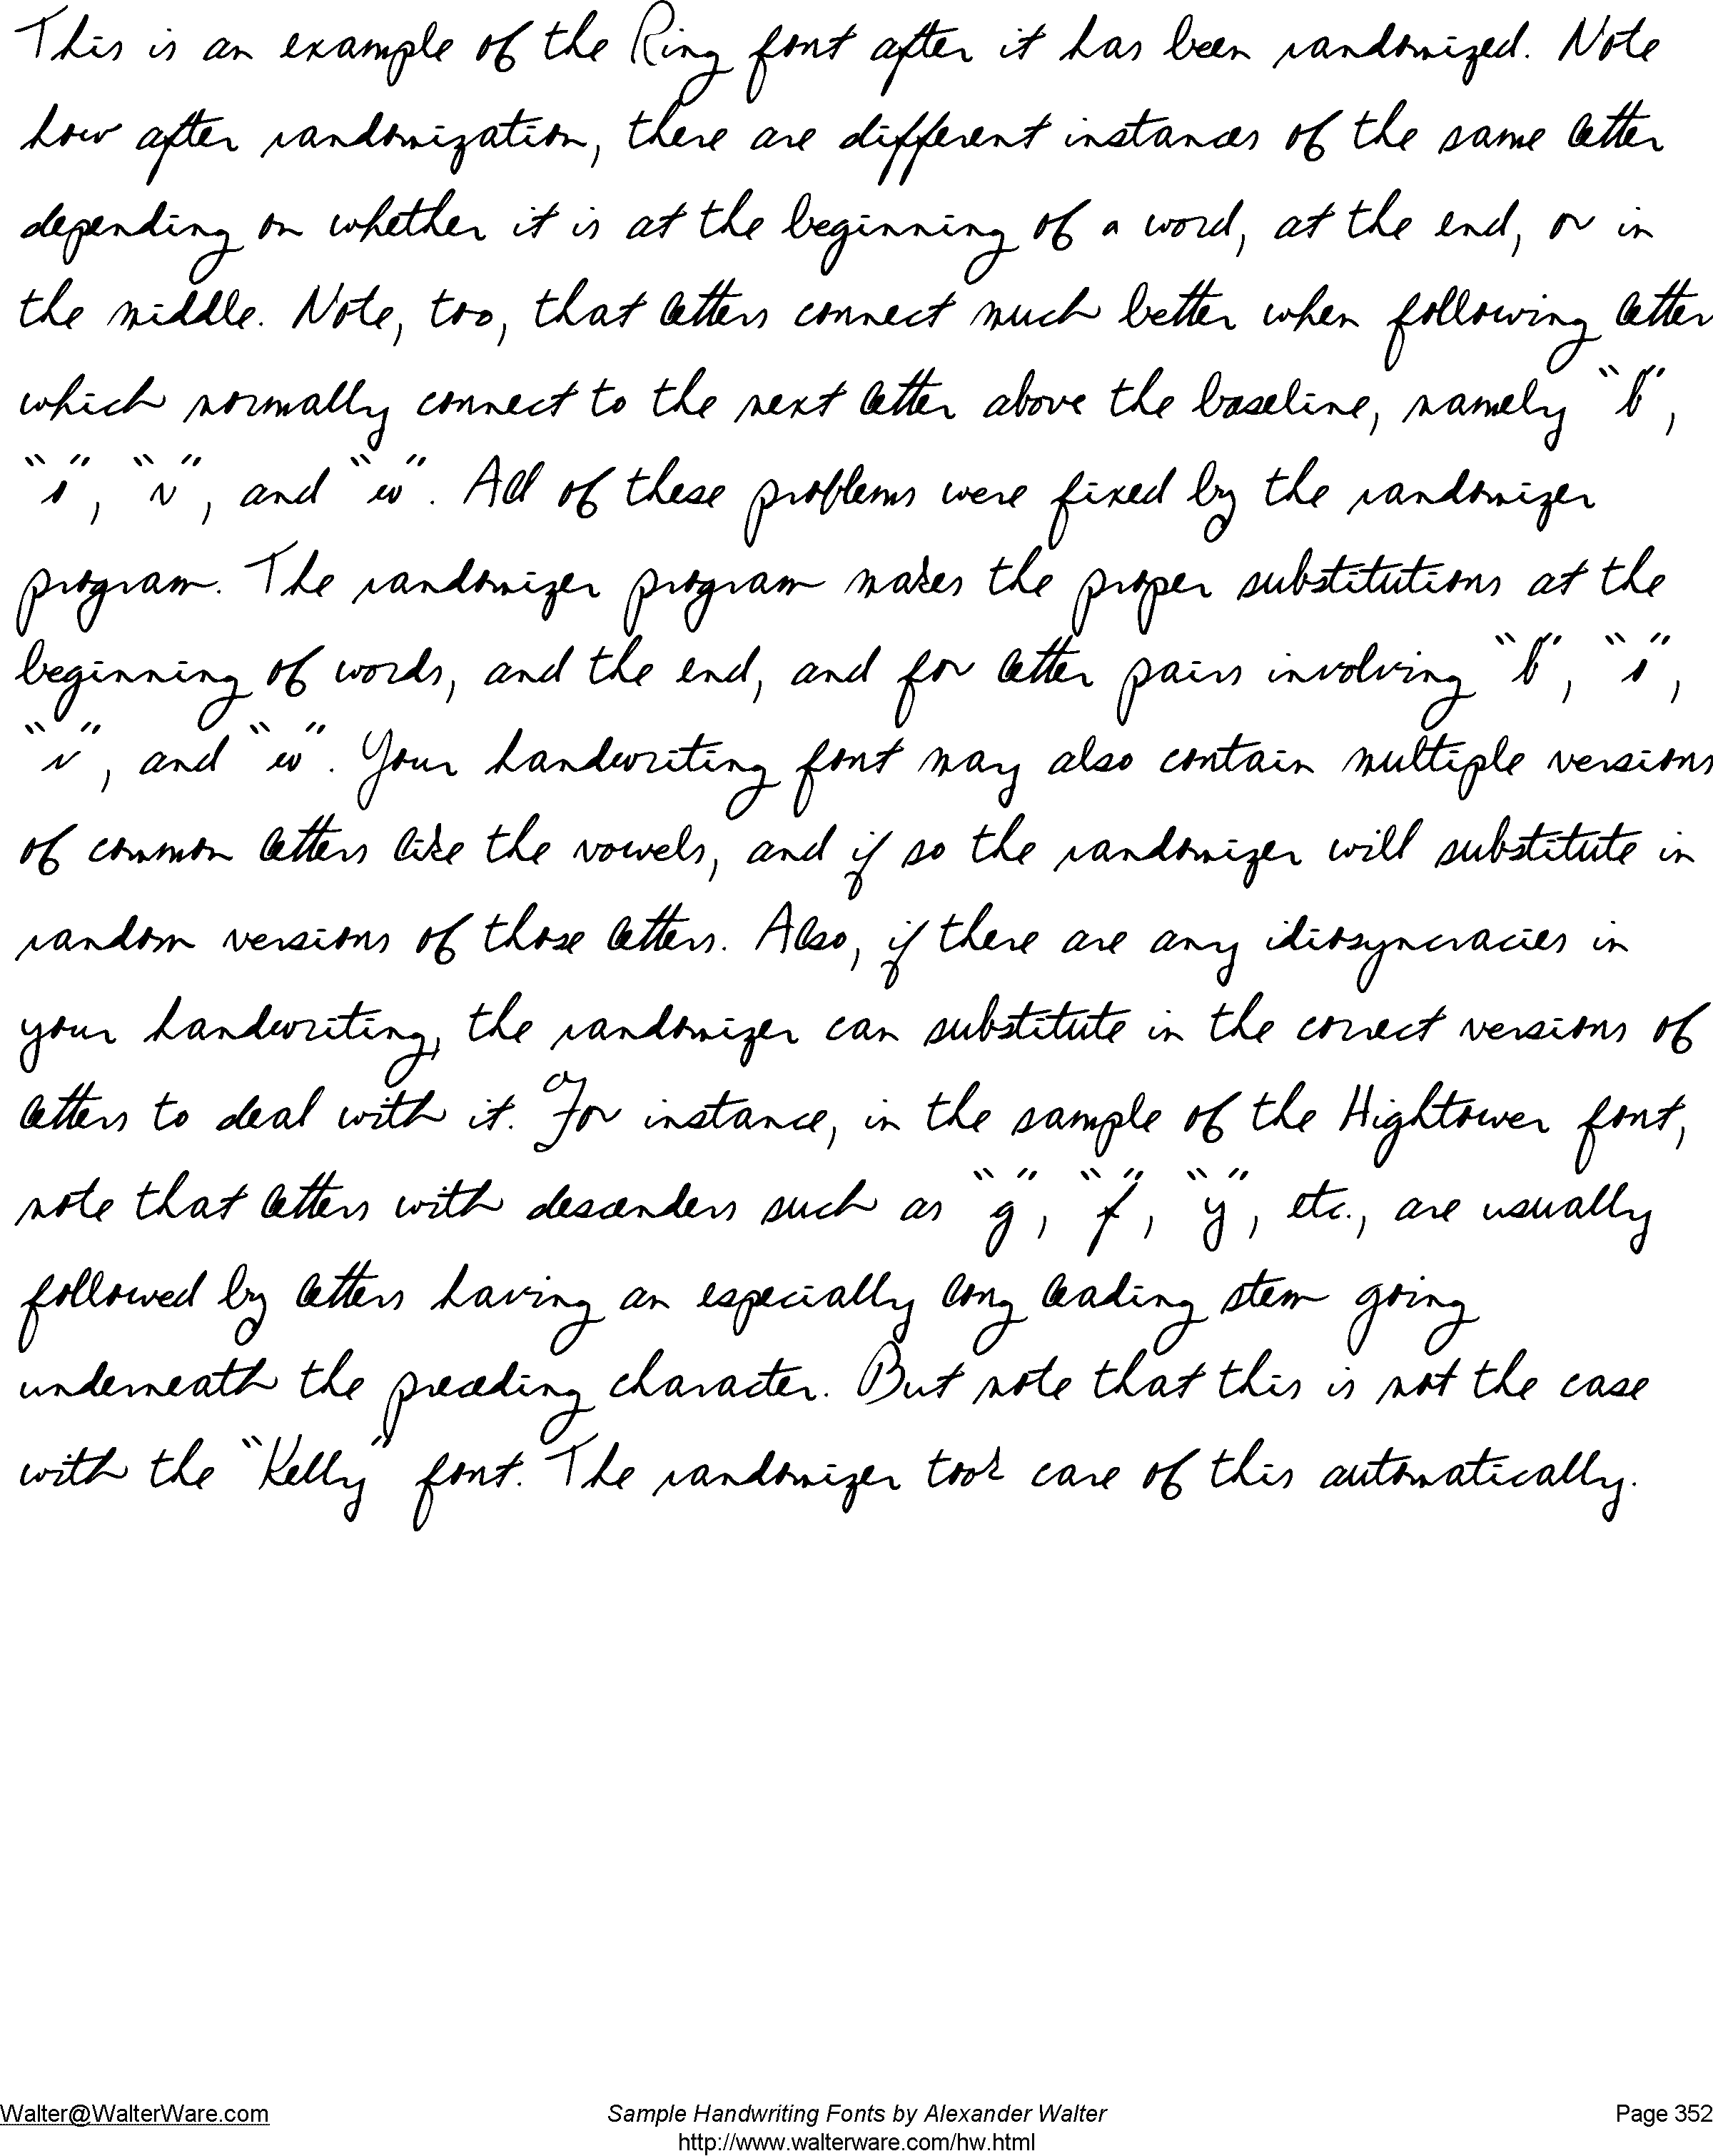 This is an example of the Ring font after it has been randomized. Note
how after randomization, there are different instances of the same letter
depending on whether it is at the beginning of a word, at the end, or in
the middle. Note, too, that letters connect much better when following letter
which normally connect to the next letter above the baseline, namely “b”,
“o”, “v”, and “w”. All of these problems were fixed by the randomizer
program. The randomizer program makes the proper substitutions at the
beginning of words, and the end, and for letter pairs involving “b”, “o”,
“v”, and “w”. Your handwriting font may also contain multiple versions
of common letters like the vowels, and if so the randomizer will substitute in
random versions of those letters. Also, if there are any idiosyncracies in
your handwriting, the randomizer can substitute in the correct versions of
letters to deal with it. For instance, in the sample of the Hightower font,
note that letters with descenders such as “g”, “f”, “y”, etc., are usually
followed by letters having an especially long leading stem going
underneath the preceding character. But note that this is not the case
with the “Kelly” font. The randomizer took care of this automatically.
Walter@WalterWare.com Sample Handwriting Fonts by Alexander Walter Page 352
http://www.walterware.com/hw.html